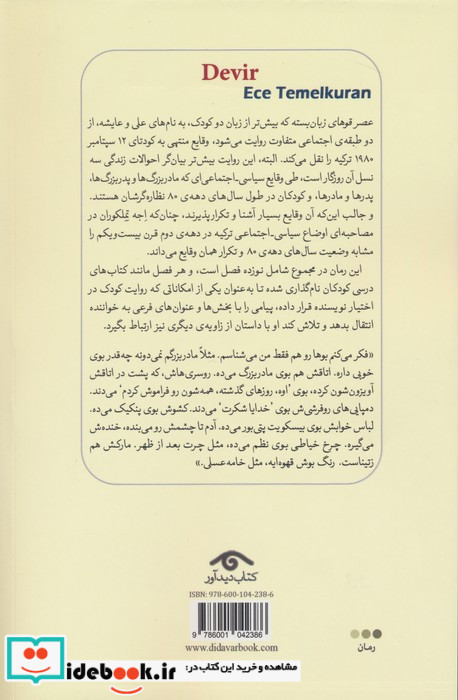 Devir
Ece Temelkuran
عصر قوهای زبان‌بسته که بیش‌تر از زبان دو کودک، به نام‌های علی و عایشه، از
دو طبقه‌ی اجتماعی متفاوت روایت می‌شود، وقایع منتهی به کودتای ۱۲ سپتامبر
۱۹۸۰ ترکیه را نقل می‌کند. البته، این روایت بیش‌تر بیان‌گر احوالات زندگی سه
نسل آن روزگار است، طی وقایع سیاسی-اجتماعی‌ای که مادربزرگ‌ها و پدربزرگ‌ها،
پدرها و مادرها، و کودکان در طول سال‌های دهه‌ی ۸۰ نظاره‌گرشان هستند.
و جالب این‌که آن وقایع بسیار آشنا و تکرارپذیرند، چنان‌که اجه تملکوران در
مصاحبه‌ای اوضاع سیاسی-اجتماعی ترکیه در دهه‌ی دوم قرن بیست‌ویکم را
مشابه وضعیت سال‌های دهه‌ی ۸۰ و تکرار همان وقایع می‌داند.
این رمان در مجموع شامل نوزده فصل است، و هر فصل مانند کتاب‌های
درسی کودکان نام‌گذاری شده تا به‌عنوان یکی از امکاناتی که روایت کودک در
اختیار نویسنده قرار داده، پیامی را با بخش‌ها و عنوان‌های فرعی به خواننده
انتقال بدهد و تلاش کند او با داستان از زاویه‌ی دیگری نیز ارتباط بگیرد.
«فکر می‌کنم بوها رو هم فقط من می‌شناسم. مثلاً مادربزرگم نمی‌دونه چه‌قدر بوی
خوبی داره، اتاقش هم بوی مادربزرگ می‌ده. روسری‌هاش، که پشت در اتاقش
آویزون‌شون کرده، بوی ’اوه، روزهای گذشته، همه‌شون رو فراموش کردم‘ می‌دند.
دمپایی‌های روفرشی‌ش بوی ’خدایا شکرت‘ می‌دند. کشوش بوی پنکیک می‌ده.
لباس خوابش بوی بیسکویت پتی‌بور می‌ده. آدم تا چشمش رو می‌بنده، خنده‌ش
می‌گیره. چرخ خیاطی بوی نظم می‌ده، مثل چرت بعد از ظهر. مارکش هم
زتیناست. رنگ بوش قهوه‌ایه، مثل خامه‌عسلی.»
کتاب دیدآور
ISBN: 978-600-104-238-6
9 786001 042386
www.didavarbook.com
رمان
idebook.ir
مشاهده و خرید این کتاب در: